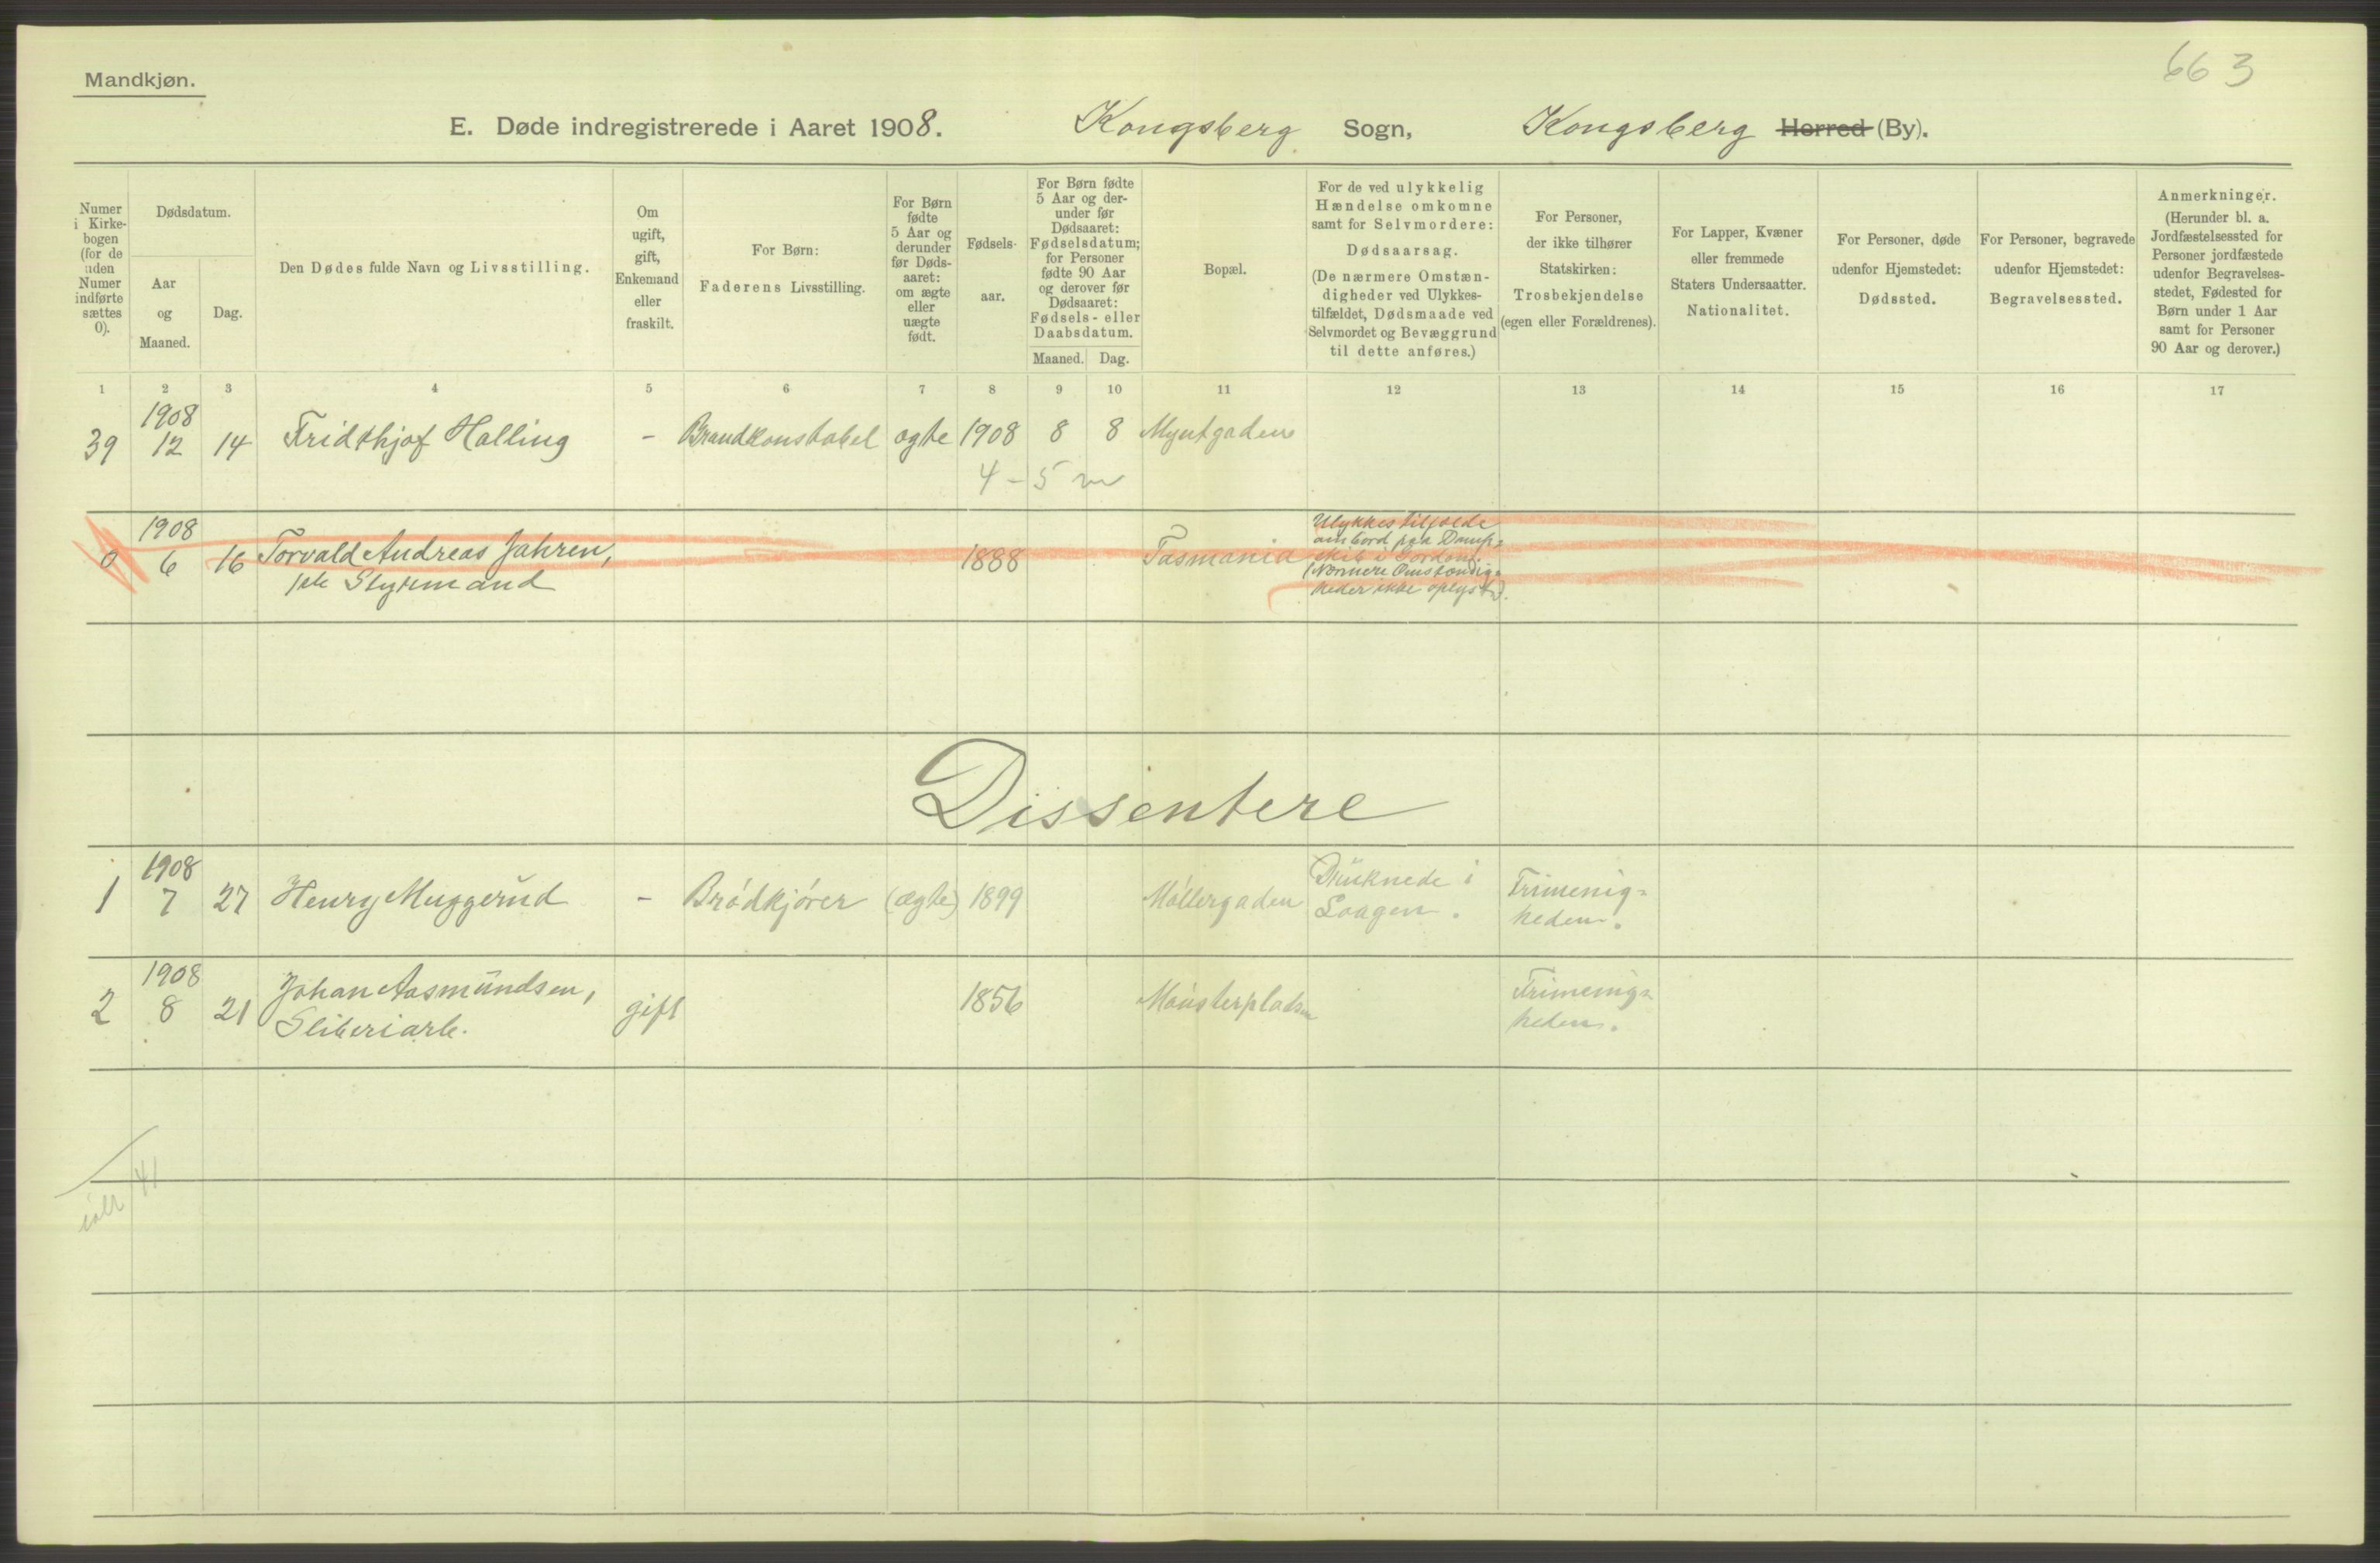 663
Mandkjøn.
E. Døde indregistrerede i Aaret 1908. Kongsberg Sogn, Kongsberg Herred (By).
Numer i Kirke-bogen (for de uden Numer indførte sættes 0).
Dødsdatum.
Aar og Maaned.
Dag.
Den Dødes fulde Navn og Livsstilling.
Om ugift, gift, Enkemand eller fraskilt.
For Børn: Faderens Livsstilling.
For Børn fødte 5 Aar og derunder før Døds-aaret: om ægte eller uægte født.
Fødsels-aar.
For Børn fødte 5 Aar og der-under før Dødsaaret: Fødselsdatum; for Personer fødte 90 Aar og derover før Dødsaaret: Fødsels- eller Daabsdatum.
Maaned. Dag.
Bopæl.
For de ved ulykkelig Hændelse omkomne samt for Selvmordere: Dødsaarsag. (De nærmere Omstæn-digheder ved Ulykkes-tilfældet, Dødsmaade ved Selvmordet og Bevæggrund til dette anføres.)
For Personer, der ikke tilhører Statskirken: Trosbekjendelse (egen eller Forældrenes).
For Lapper, Kvæner eller fremmede Staters Undersaatter. Nationalitet.
For Personer, døde udenfor Hjemstedet: Dødssted.
For Personer, begravede udenfor Hjemstedet: Begravelsessted.
Anmerkninger. (Herunder bl. a. Jordfæstelsessted for Personer jordfæstede udenfor Begravelses-stedet, Fødested for Børn under 1 Aar samt for Personer 90 Aar og derover.)
1 2 3 4 5 6 7 8 9 10 11 12 13 14 15 16 17
1908
39 12 14 Fridthjof Halling - Brandkonstabel ægte 1908 8 8 Myntgaden
4-5 m
1908
0 6 16 Torvald Andreas Jahren, 1888 Tasmania
Styrmand
Ulykkestilfælde
ombord paa Damp=
skib i
(Nærmere Omstændig=
heder ikke oplyst).
Dissentere
1908
1 7 27 Henry Muggerud - Brødkjører (ægte) 1899 Møllergaden
Druknede i
Laagen.
Frimenig=
heden.
1908
2 8 21 Johan Aasmundsen, gift 1856
Sliberiarb.
Frimenig=
heden.
41